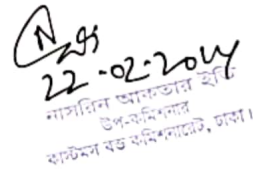 22-02-2024
নাসরিন আকতার
উপ-কমিশনার
কাস্টমস বন্ড কমিশনারেট, ঢাকা।